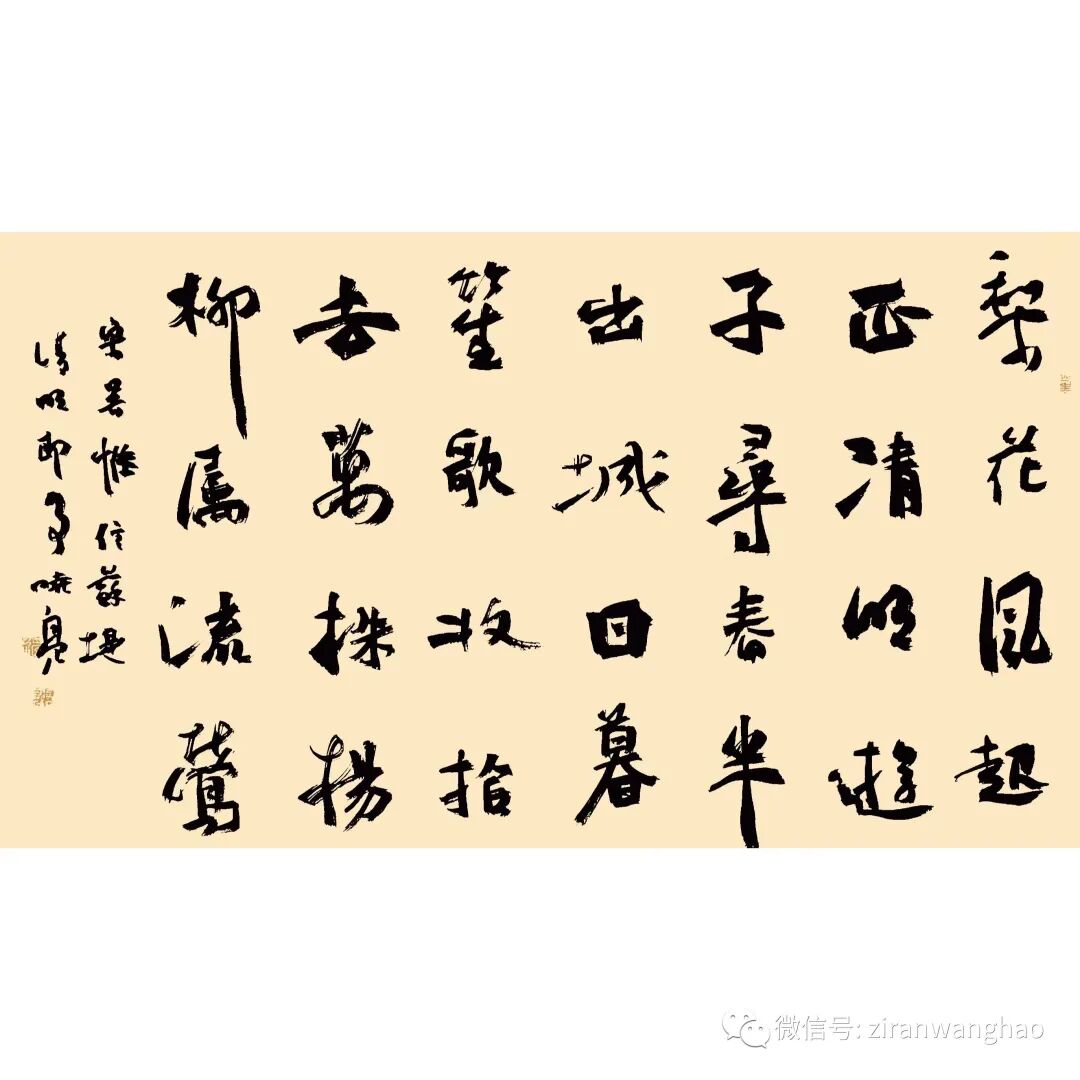 梨花風起
正清明遊
子尋春半
出城日暮
笙歌收拾
去萬株楊
柳屬流鶯
宋吳惟信蘇堤
清明即事曉亮
微信号: ziranwanghao